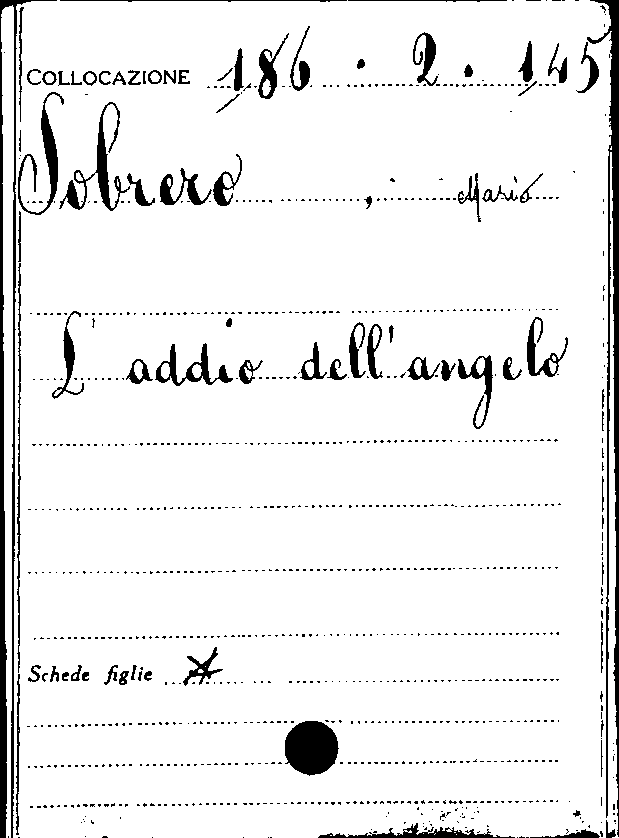 COLLOCAZIONE 186 . 2 . 145
Sobrero , Mario
L'addio dell'angelo
Schede figlie